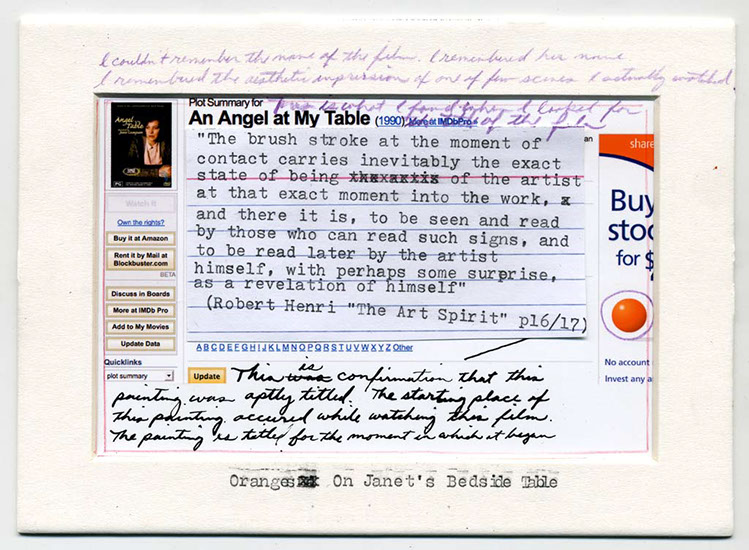 I couldn't remember the name of the film. I remembered her name
I remembered the aesthetic impression of one of few scenes I actually watched
This is what I found when I looked for
of the film
Plot Summary for
An Angel at My Table (1990) More at IMDbPro
an
An Angel at My Table
PG
Watch It
Own the rights?
Buy it at Amazon
Rent it by Mail at
Blockbuster.com
BETA
Discuss in Boards
More at IMDb Pro
Add to My Movies
Update Data
Quicklinks
plot summary
"The brush stroke at the moment of
contact carries inevitably the exact
state of being of the artist
at that exact moment into the work, x
and there it is, to be seen and read
by those who can read such signs, and
to be read later by the artist
himself, with perhaps some surprise,
as a revelation of himself"
(Robert Henri "The Art Spirit" p16/17)
A B C D E F G H I J K L M N O P Q R S T U V W X Y Z Other
share
Buy
stoc
for $
No account
Invest any a
Update
This is was confirmation that this
painting was aptly titled. The starting place of
this painting accured while watching this film.
The painting is titled for the moment in which it began
Oranges On Janet's Bedside Table